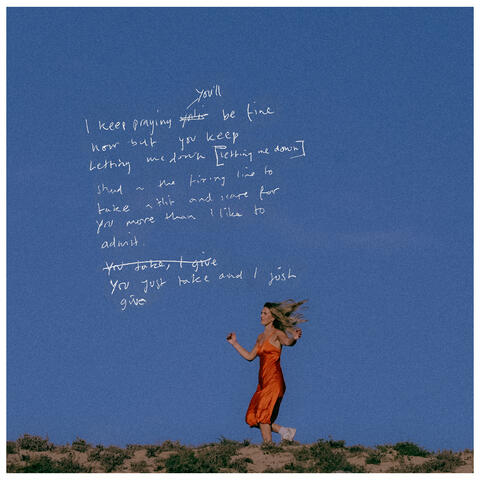 you'll
I keep praying be fine
now but you keep
letting me down [letting me down]
stand in the firing line to
take a hit and for
you more than I like to
admit.
You take, I give
You just take and I just
give